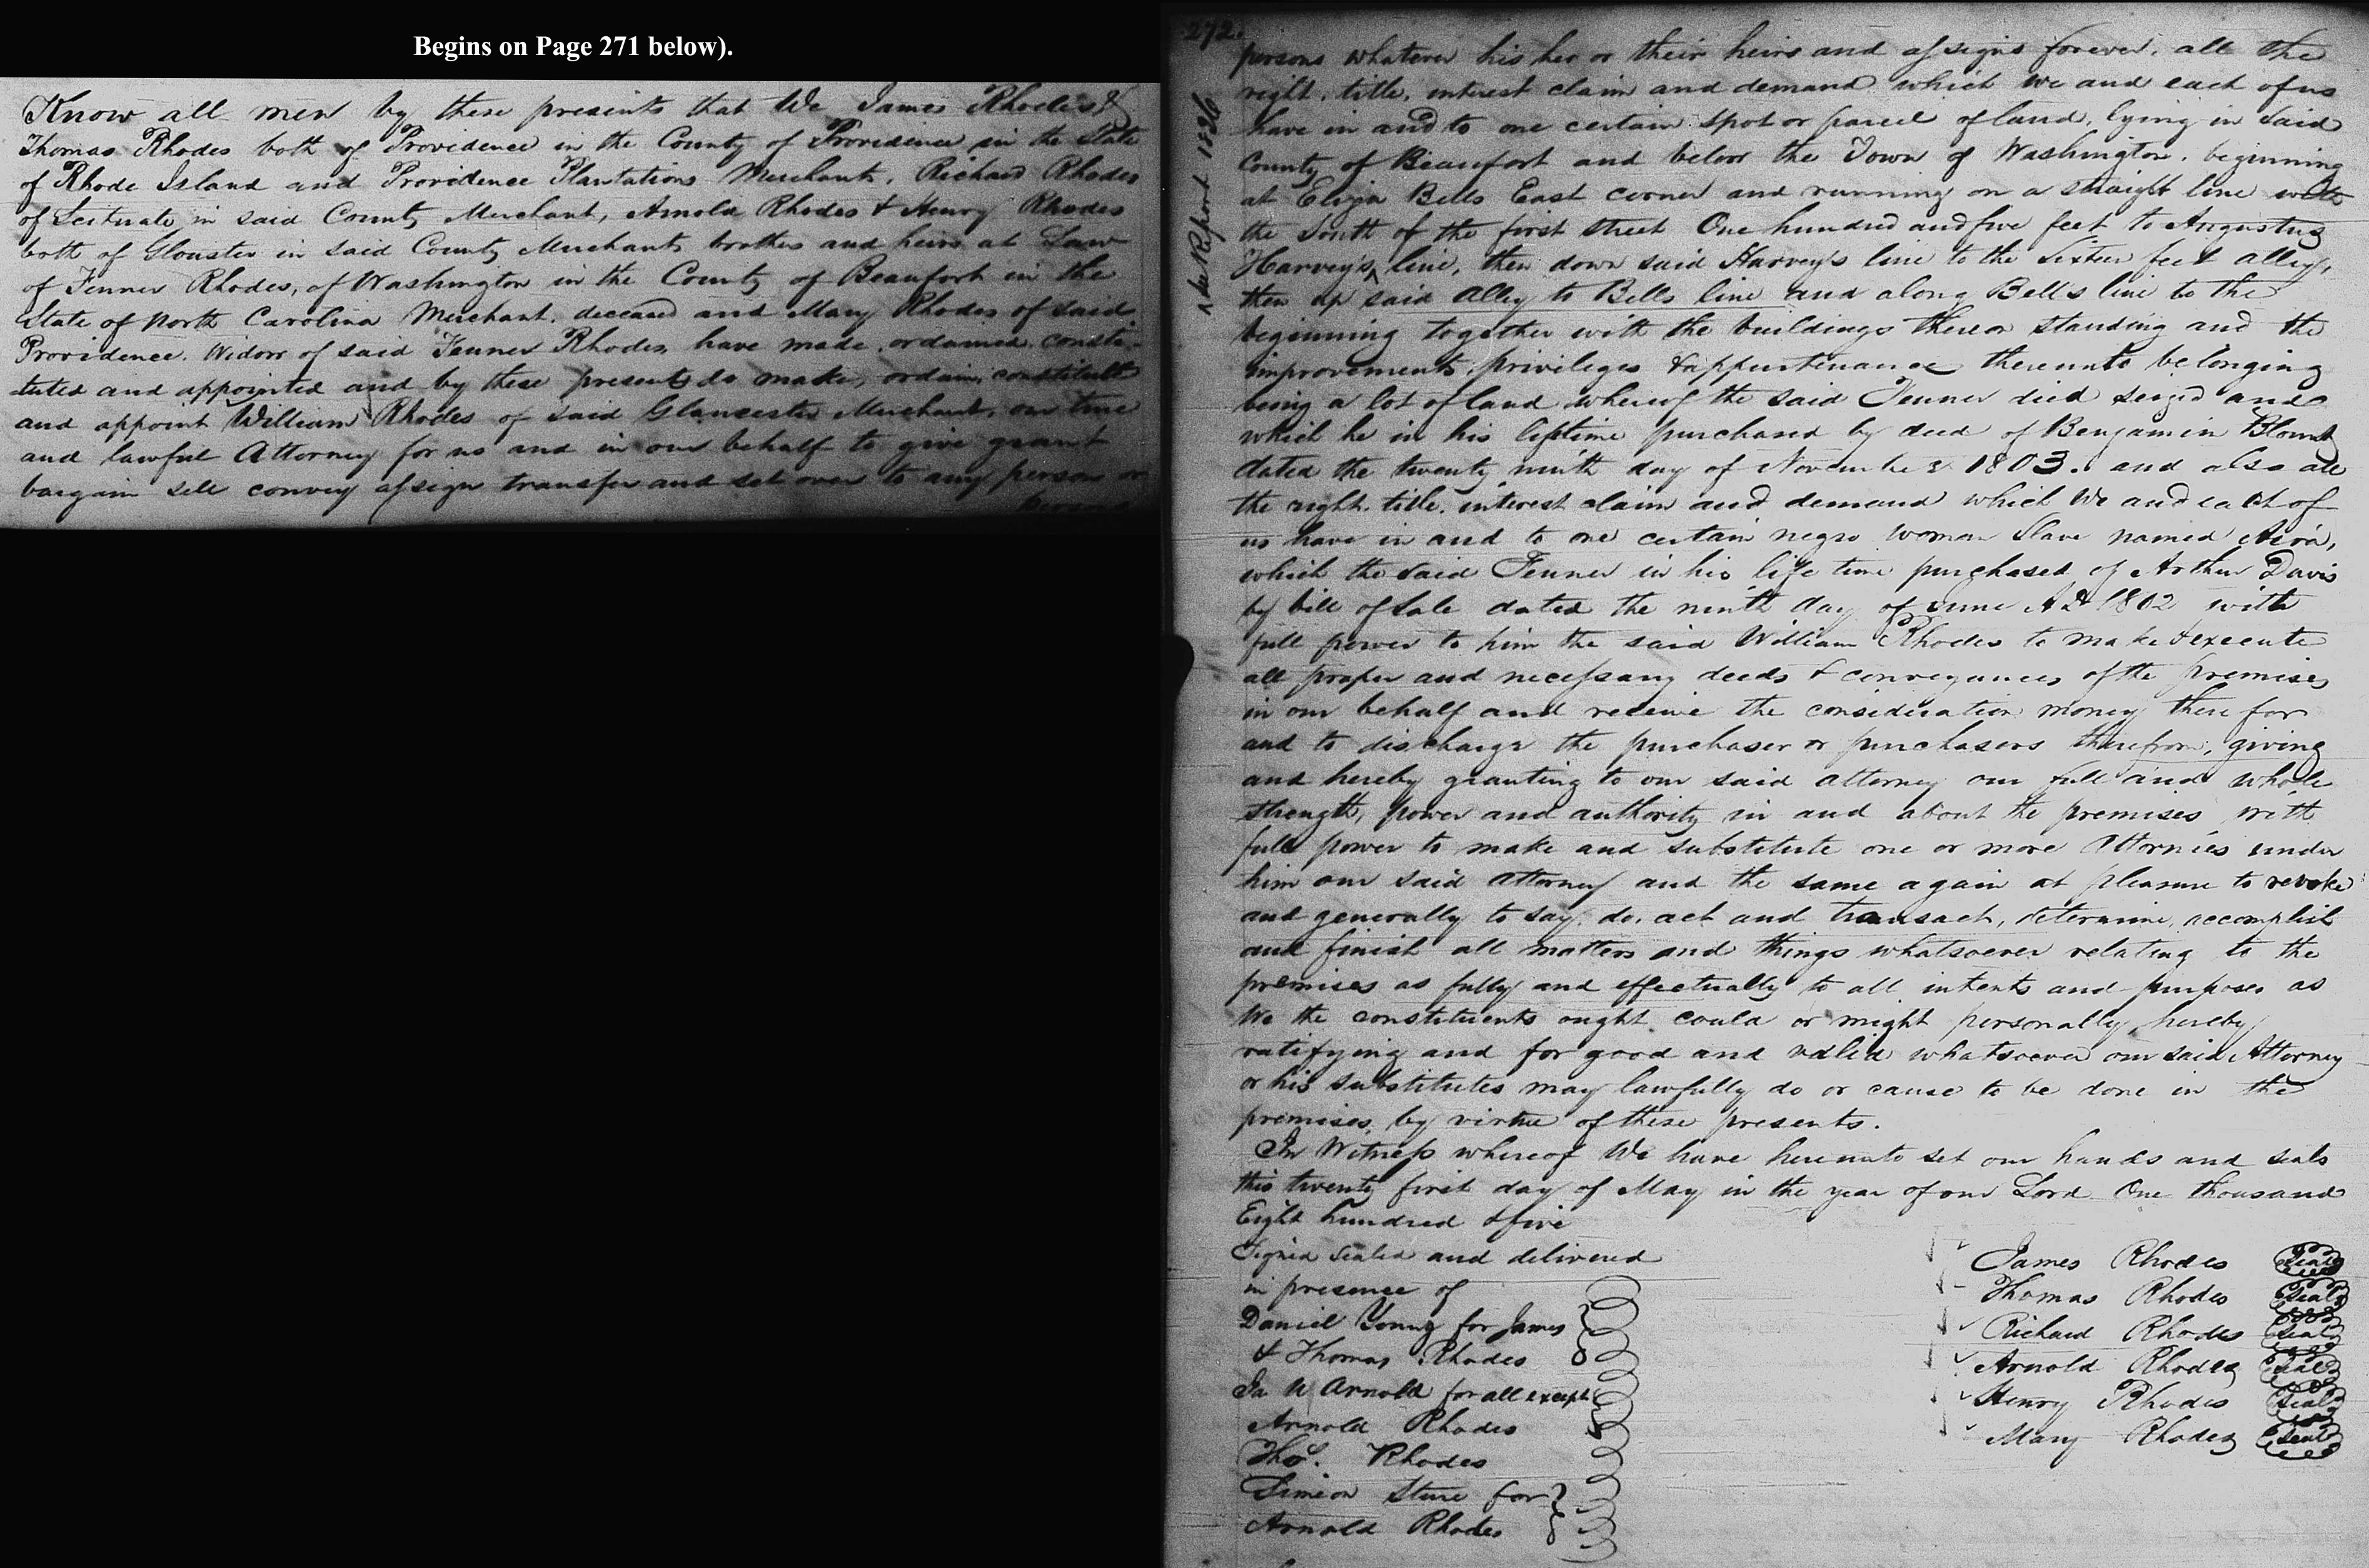 Begins on Page 271 below).
Know all men by these presents that We James Rhodes &
Thomas Rhodes both of Providence in the County of Providence in the State
of Rhode Island and Providence Plantations Merchants, Richard Rhodes
of Scituate in said County Merchant, Arnold Rhodes & Henry Rhodes
both of Glouster in said County Merchants brothers and heirs at Law
of Fenner Rhodes, of Washington in the County of Beaufort in the
State of North Carolina Merchant. deceased and Mary Rhodes of said
Providence. Widow of said Fenner Rhodes, have made, ordained, consti-
tuted and appointed and by these presents do make, ordain, constitute
and appoint William Rhodes of said Glaucester Merchant, our true
and lawful Attorney for us and in our behalf to give grant
bargain sell convey assign transfer and set over to any person or
persons
272.
persons whatever his her or their heirs and assigns forever. all the
right. title. interest claim and demand which we and each of us
have in and to one certain spot or parcel of land, lying in said
County of Beaufort and below the Town of Washington. beginning
at Bells East corner and running on a straight line with
the South of the first street One hundred and five feet to Augustus
Harvey's line, then down said Harvey's line to the Sixteen feet alley,
then up said Alley to Bells line and along Bell's line to the
beginning together with the buildings thereon standing and the
improvements, privileges & appurtenance thereunto belonging
being a lot of land whereof the said Fenner died seized and
which he in his liftime purchased by deed of Benjamin Blount
dated the twenty ninth day of November 1803. and also all
the right. title. interest claim and demand which We and each of
us have in and to one certain negro woman Slave named
which the said Fenner in his life time purchased of Arthur Davis
by bill of Sale dated the ninth day of June AD 1802 with
full power to him the said William Rhodes to make & execute
all proper and necessary deeds & conveyances of the premises
in our behalf and receive the consideration money there for
and to discharge the purchaser or purchasers therefrom, giving
and hereby granting to our said attorney our full and whole
strength, power and authority in and about the premises, with
full power to make and substitute one or more Attornies under
him our said attorney and the same again at pleasure to revoke
and generally to say, do, act and transact, determine, accomplish
and finish all matters and things whatsoever relating to the
premises as fully and effectually to all intents and purposes as
We the constituents ought could or might personally, hereby
ratifying and for good and valid whatsoever our said Attorney
or his substitutes may lawfully do or cause to be done in the
premises, by virtue of these presents.
In Witness whereof We have hereunto set our hands and seals
this twenty first day of May in the year of our Lord One thousand
Eight hundred & five
Signed Sealed and delivered
in presence of
Daniel Young for James
& Thomas Rhodes
Ja W Arnold for all except
Arnold Rhodes
Thos. Rhodes
Simeon for
Arnold Rhodes
James Rhodes Seal
Thomas Rhodes Seal
Richard Rhodes Seal
Arnold Rhodes Seal
Henry Rhodes Seal
Mary Rhodes Seal